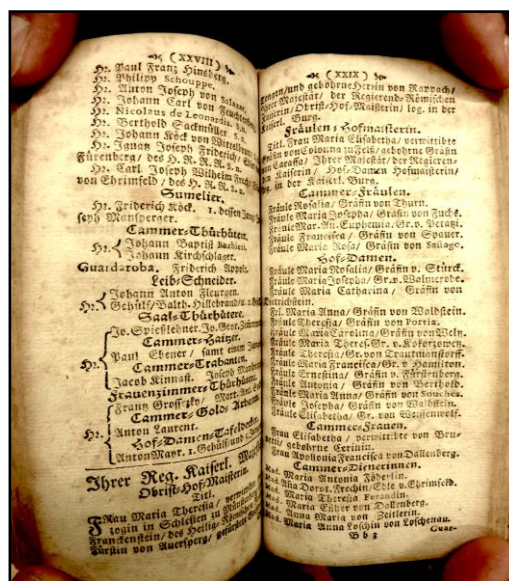 ( XXVIII )
Hr. Paul Franz Hinsberg.
Hr. Philipp Schouppe.
Hr. Anton Joseph von Salazar.
Hr. Johann Carl von
Hr. Nicolaus de Leonardis.
Hr. Berthold Sackmüller.
Hr. Johann Köck von
Hr. Ignatz Joseph Friderich
Fürenberg/ des H. R. R. R.
Hr. Carl Joseph Wilhelm
von Ehrimfeld/ des H. R. R.
Sumelier.
Hr. Friderich Röck. 1. dessen
seph Mansperger.
Cammer-Thürhüter.
Hr. Johann Baptist
Johann Kirchschlager.
Guardaroba. Friderich
Leib-Schneider.
Hr. Johann Anton Fleurgen.
Gehülf/ Balth. Hillebrand/
Saal-Thürhütere.
Jo. Spießlehner. Jo. Geor.
Cammer-Haitzer.
Hr. Paul Ebener/ samt einen
Cammer-Trabanten.
Jacob Kinnast. Joseph
Frauenzimmer-Thürhüter.
Frantz
Cammer-Gold-
Hr. Anton Laurent.
Hof-Damen-Tafeldecker.
Anton Mayr. 1. Gehülf/ und
Ihrer Reg. Kaiserl.
Obrist-Hof-Maisterin.
Titl.
FRau Maria Theresia/
zogin in Schlesien zu
Franckenstein/ des Heilig-
Fürstin von Auersperg/
( XXIX )
und gebohrne Herrin von Rappach/
Ihrer Majestät/ der Regierend-Römischen
Obrist-Hof-Maisterin/ log. in der
Kaiserl. Burg.
Fräulen-Hofmaisterin.
Titl. Frau Maria Elisabetha/ verwittibte
Gräfin von Colonna zu Felß/ gebohrne Gräfin
von Caraffa/ Ihrer Majestät/ der Regieren-
Kaiserin/ Hof-Damen Hofmaisterin/
log. in der Kaiserl. Burg.
Cammer-Fräulen.
Fräule Rosalia/ Gräfin von Thurn.
Fräule Maria Josepha/ Gräfin von Fuchs.
Fräule Mar. An. Euphemia/ Gr. v. Petazzi.
Fräule Francisca/ Gräfin von Spauer.
Fräule Maria Rosa/ Gräfin von Sailago.
Hof-Damen.
Fräule Maria Rosalia/ Gräfin v. Stürck.
Fräule Maria Josepha/ Gr. v. Walmerode.
Fräule Maria Catharina/ Gräfin von
Dietrichstein.
Frl. Maria Anna/ Gräfin von Waldstein.
Fräule Theresia/ Gräfin von Portia.
Fräule Maria Carolina/ Gräfin von Weltz.
Fräule Maria Theres. Gr. v. Kokorzowez.
Fräule Theresia/ Gr. von Trautmanstorff.
Fräule Maria Francisca/ Gr. v. Hamilton.
Fräule Ernestina/ Gräfin v. Fürstenberg.
Fräule Antonia/ Gräfin von Berthold.
Fräule Maria Anna/ Gräfin von Souches.
Fräule Josepha/ Gräfin von Waldstein.
Fräule Elisabetha/ Gr. von Weissenwolf.
Cammer-Frauen.
Frau Elisabetha/ verwittibte von Bru-
gebohrne Gerinin.
Frau Apollonia Francisca von Dallenberg.
Cammer-Dienerinnen.
Mad. Maria Antonia Föderlin.
Mad. Aña Dorot. Frechin/ Edle v. Ehrimfeld.
Mad. Maria Theresia Ferandin.
Mad. Maria Esther von Dallenberg.
Mad. Anna Maria von Zeitlerin.
Mad. Maria Anna Loschin von Loschenau.
B b 3
Guar-